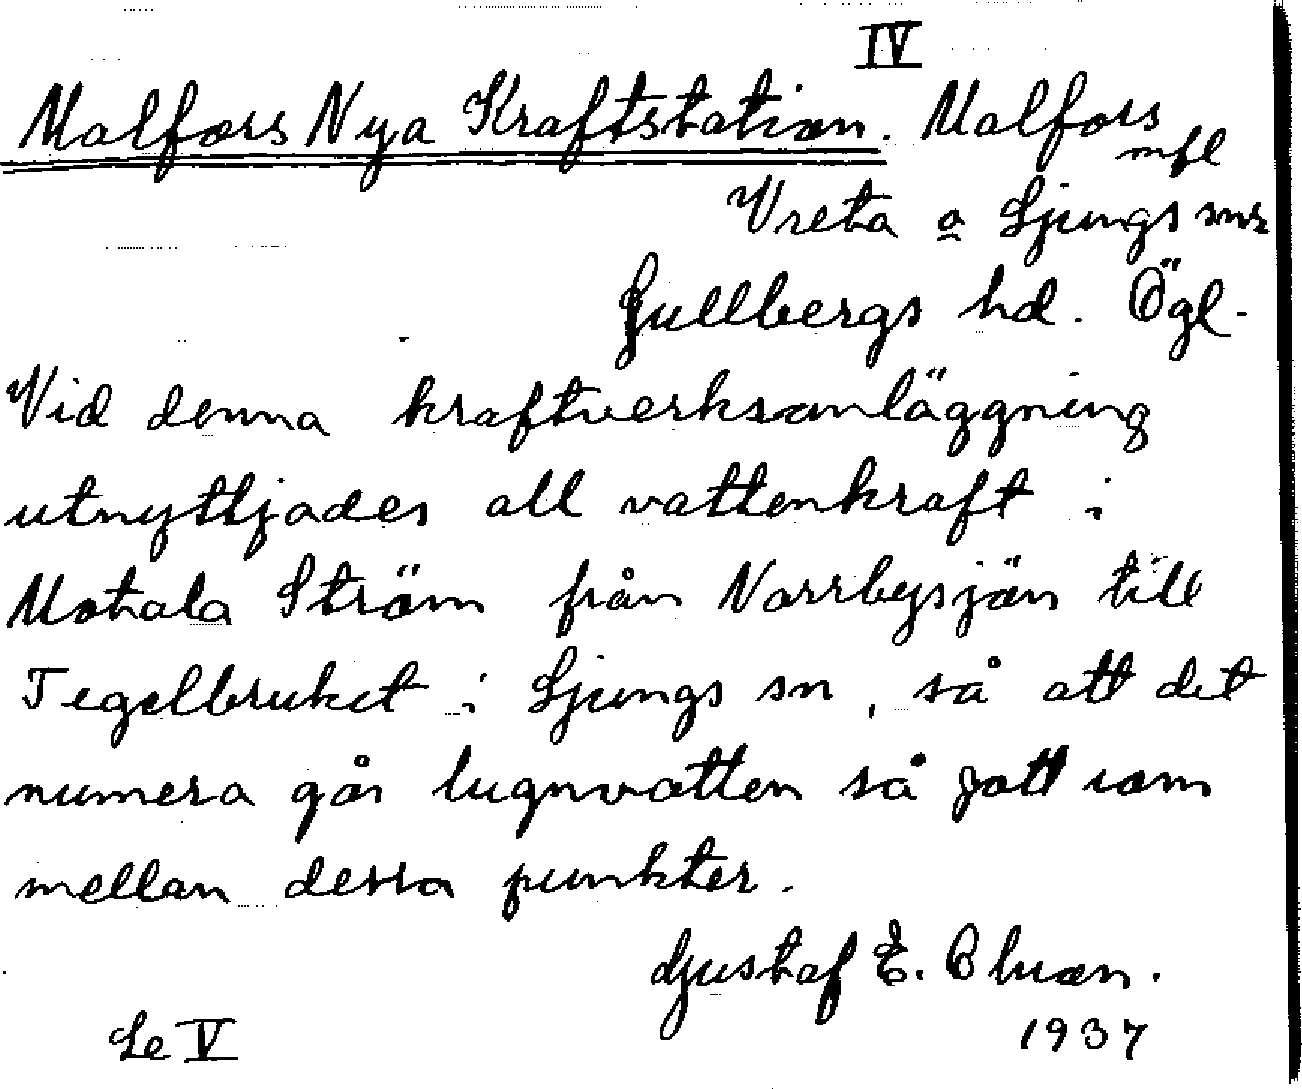 IV
Malfors Nya Kraftstation. Malfors
mfl
Vreta o Ljungs snr
Gullbergs hd. Ögl.
Vid denna kraftverksanläggning
utnyttjades all vattenkraft i
Motala Ström från Norrbysjön till
Tegelbruket i Ljungs sn, så att det
numera går lugnvatten så gott som
mellan dessa punkter.
Gustaf E.
1937
Se V